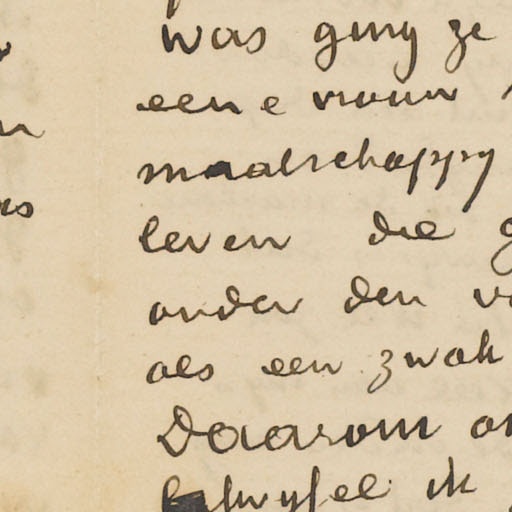 was ging ze
eene vrouw
maatschappy
leven die
onder den
als een zwak
Daarom
twyfel ik